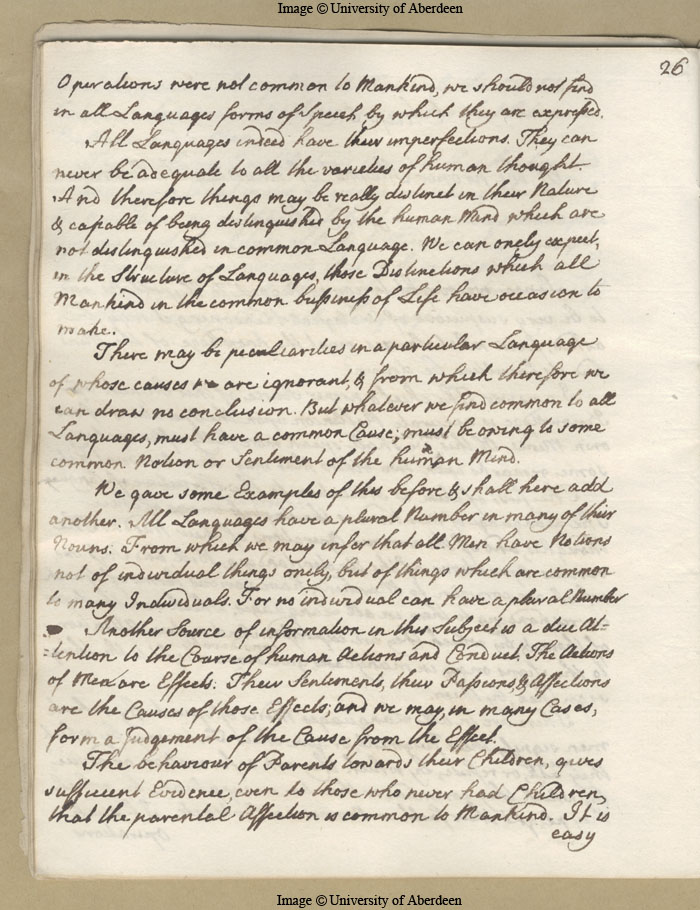 Image © University of Aberdeen
26
Operations were not common to Mankind, we should not find
in all Languages forms of Speech by which they are expressed.
All Languages indeed have their imperfections. They can
never be adequate to all the varieties of human thought.
And therefore things may be really distinct in their Nature
& capable of being distinguished by the human Mind which are
not distinguished in common Language. We can onely expect,
in the Structure of Languages, those Distinctions which all
Mankind in the common bussiness of Life have occasion to
make.
There may be peculiarities in a particular Language
of whose causes we are ignorant, & from which therefore we
can draw no conclusion. But whatever we find common to all
Languages, must have a common Cause; must be owing to some
common Notion or Sentiment of the human Mind.
We gave some Examples of this before & shall here add
another. All Languages have a plural Number in many of their
Nouns. From which we may infer that all Men have Notions
not of individual things onely, but of things which are common
to many Individuals. For no individual can have a plural Number
Another Source of information in this Subject is a due At=
=tention to the Course of human Actions and Conduct. The Actions
of Men are Effects. Their Sentiments, their Passions, & Affections
are the Causes of those Effects; and we may, in many Cases,
form a Judgement of the Cause from the Effect.
The behaviour of Parents towards their Children, gives
sufficient Evidence, even to those who never had Children,
that the parental Affection is common to Mankind. It is
easy
Image © University of Aberdeen